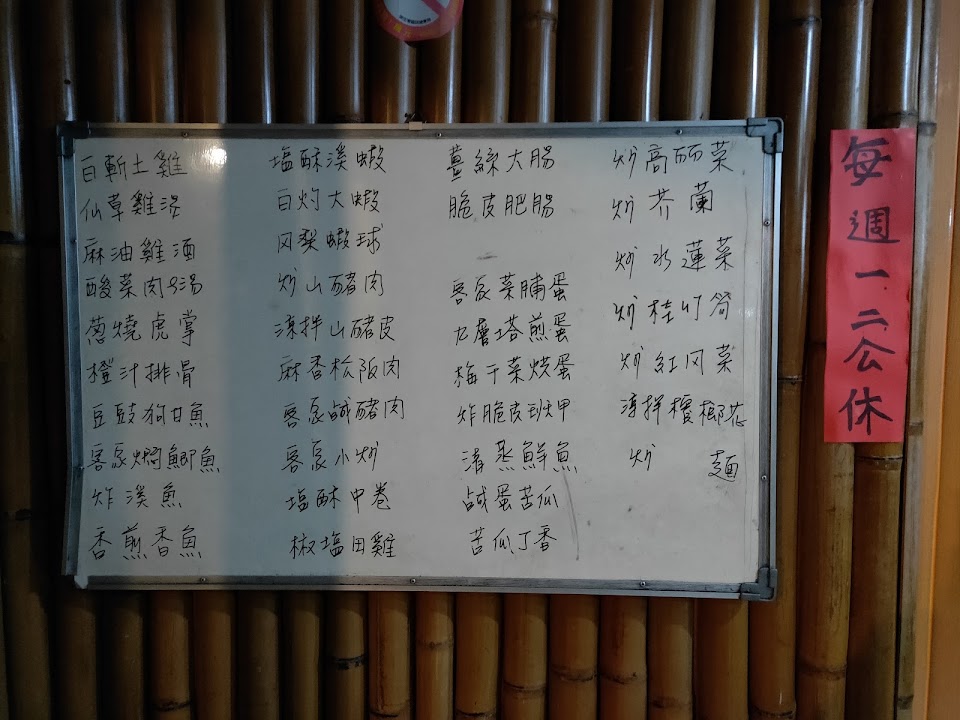 白斬土雞
仙草雞湯
麻油雞酒
酸菜肉片湯
葱燒虎掌
橙汁排骨
豆豉狗甘魚
客家燜鯽魚
炸溪魚
香煎香魚
塩酥溪蝦
白灼大蝦
风梨蝦球
炒山豬肉
凉拌山豬皮
麻香松阪肉
客家鹹豬肉
客家小炒
塩酥中卷
椒塩田雞
薑絲大腸
脆皮肥腸
客家菜脯蛋
九層塔煎蛋
梅干菜烘蛋
炸脆皮斑甲
清蒸鮮魚
鹹蛋苦瓜
苦瓜丁香
炒高丽菜
炒芥蘭
炒水蓮菜
炒桂竹筍
炒紅凤菜
凉拌檳榔花
炒 麵
每週一二公休